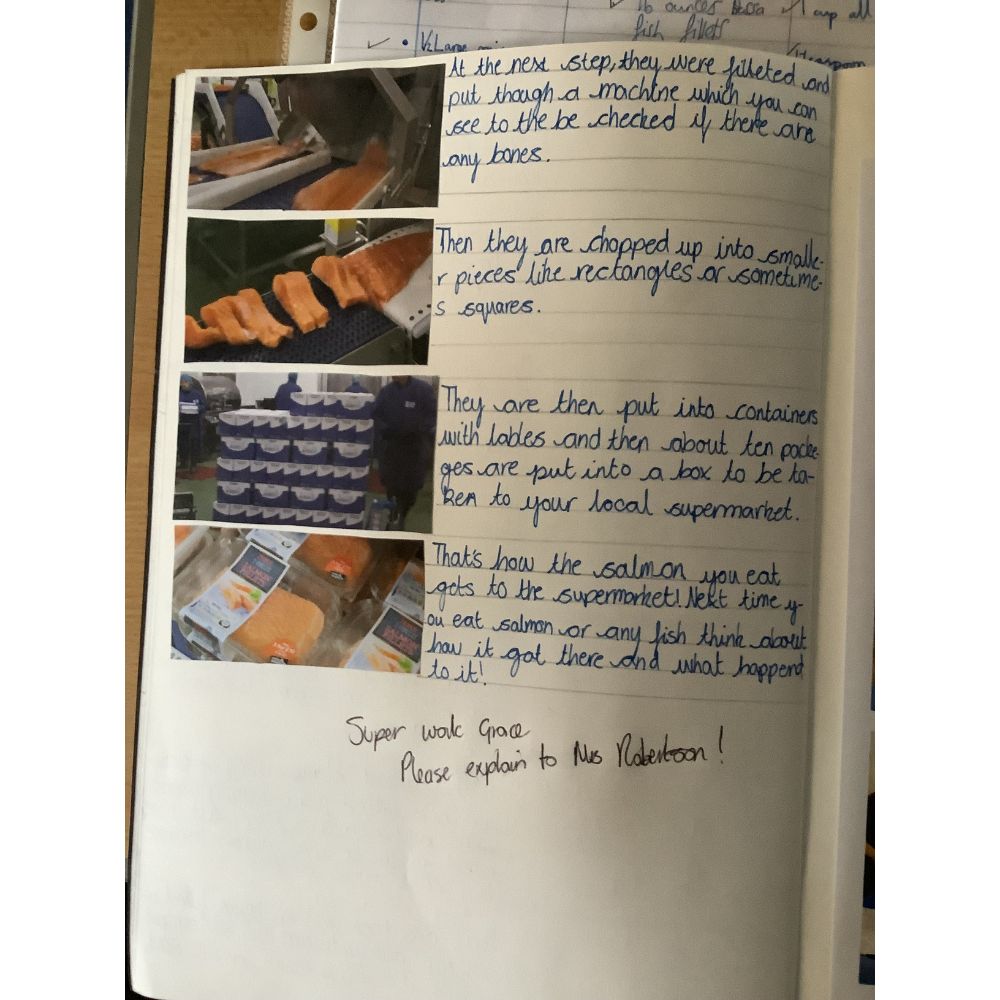 16 ounces
1 cup all
fish fillets
½ Large
At the next step, they were filleted and
put though a machine which you can
see to the be checked if there are
any bones.
Then they are chopped up into smalle-
r pieces like rectangles or sometime-
s squares.
They are then put into containers
with lables and then about ten packe-
ges are put into a box to be ta-
ken to your local supermarket.
That's how the salmon you eat
gets to the supermarket! Next time y-
ou eat salmon or any fish think about
how it got there and what happend
to it!
Super work Grace
Please explain to Mrs Robertson!